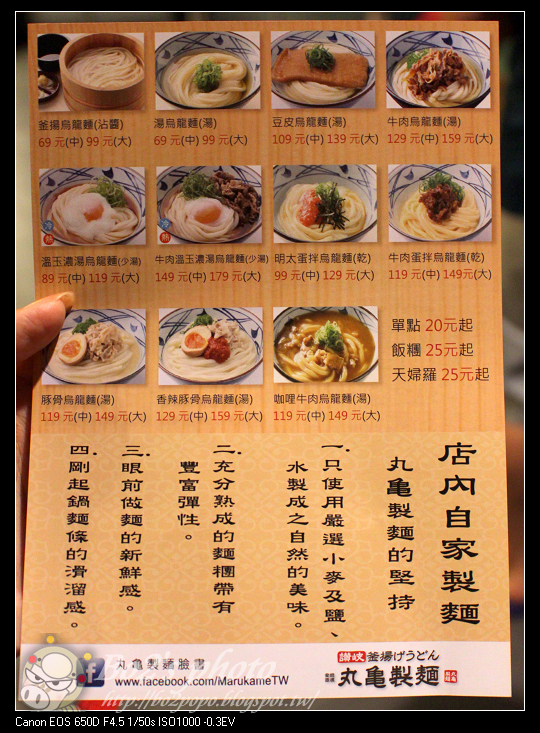 釜揚烏龍麵(沾醬)
69 元(中) 99 元(大)
湯烏龍麵(湯)
69 元(中) 99 元(大)
豆皮烏龍麵(湯)
109 元(中) 139 元(大)
牛肉烏龍麵(湯)
129 元(中) 159 元(大)
溫玉濃湯烏龍麵(少湯)
89 元(中) 119 元(大)
牛肉溫玉濃湯烏龍麵(少湯)
149 元(中) 179 元(大)
明太蛋拌烏龍麵(乾)
99 元(中) 129 元(大)
牛肉蛋拌烏龍麵(乾)
119 元(中) 149元(大)
豚骨烏龍麵(湯)
119 元(中) 149 元(大)
香辣豚骨烏龍麵(湯)
129 元(中) 159 元(大)
咖哩牛肉烏龍麵(湯)
119 元(中) 149 元(大)
單點 20元起
飯糰 25元起
天婦羅 25元起
店內自家製麵
丸亀製麵的堅持
一.只使用嚴選小麥及鹽、
水製成之自然的美味。
二.充分熟成的麵糰帶有
豐富彈性。
三.眼前做麵的新鮮感。
四.剛起鍋麵條的滑溜感。
丸亀製麵臉書
www.facebook.com/MarukameTW
讃岐 釜揚げうどん
丸亀製麵
http://bo2popo.pixnet.net/blog
Canon EOS 650D F4.5 1/50s ISO1000 -0.3EV